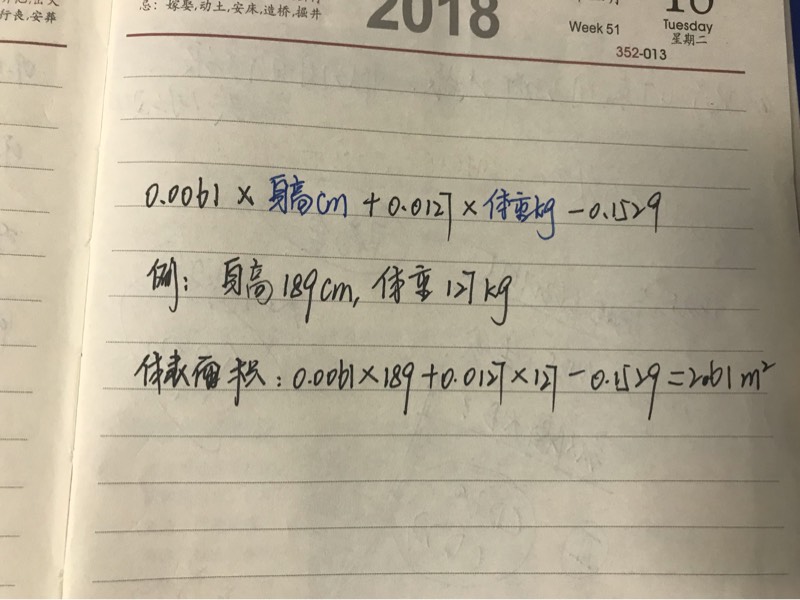 忌: 嫁娶,动土,安床,造桥,掘井
行丧,安葬
2018
Week 51
Tuesday
星期二
352-013
0.0061 × 身高cm + 0.0127 × 体重kg - 0.1529
例: 身高189cm, 体重127kg
体表面积: 0.0061×189+0.0127×127-0.1529=2.61m²